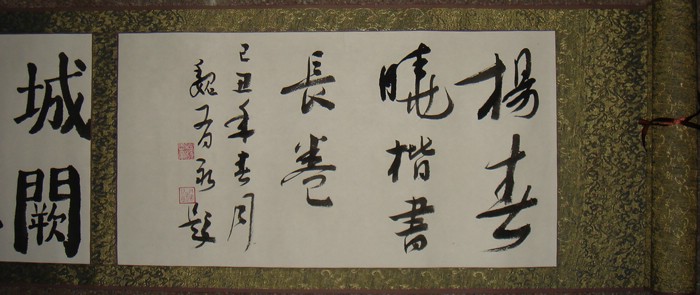 楊春
曉楷書
長卷
己丑年春
魏 題
城闕